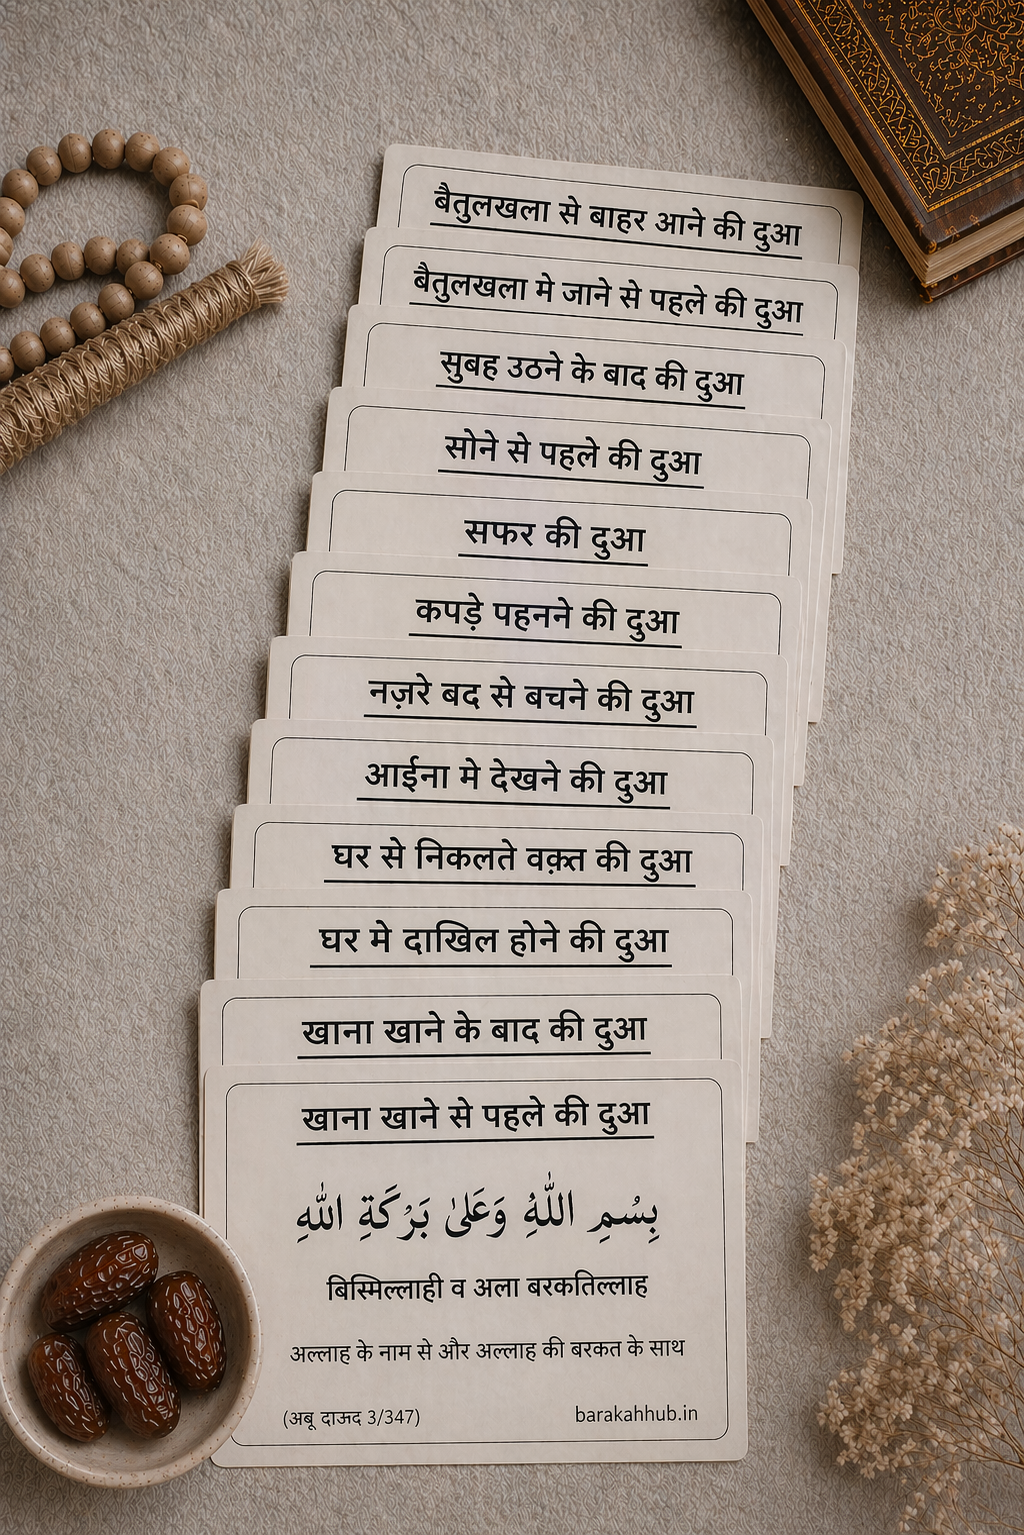 बैतुलखला से बाहर आने की दुआ
बैतुलखला मे जाने से पहले की दुआ
सुबह उठने के बाद की दुआ
सोने से पहले की दुआ
सफर की दुआ
कपड़े पहनने की दुआ
नज़रे बद से बचने की दुआ
आईना मे देखने की दुआ
घर से निकलते वक़्त की दुआ
घर मे दाखिल होने की दुआ
खाना खाने के बाद की दुआ
खाना खाने से पहले की दुआ
بِسْمِ اللّٰهِ وَعَلىٰ بَرْكَةِ اللّٰهِ
बिस्मिल्लाही व अला बरकतिल्लाह
अल्लाह के नाम से और अल्लाह की बरकत के साथ
(अबू दाऊद 3/347) barakahhub.in